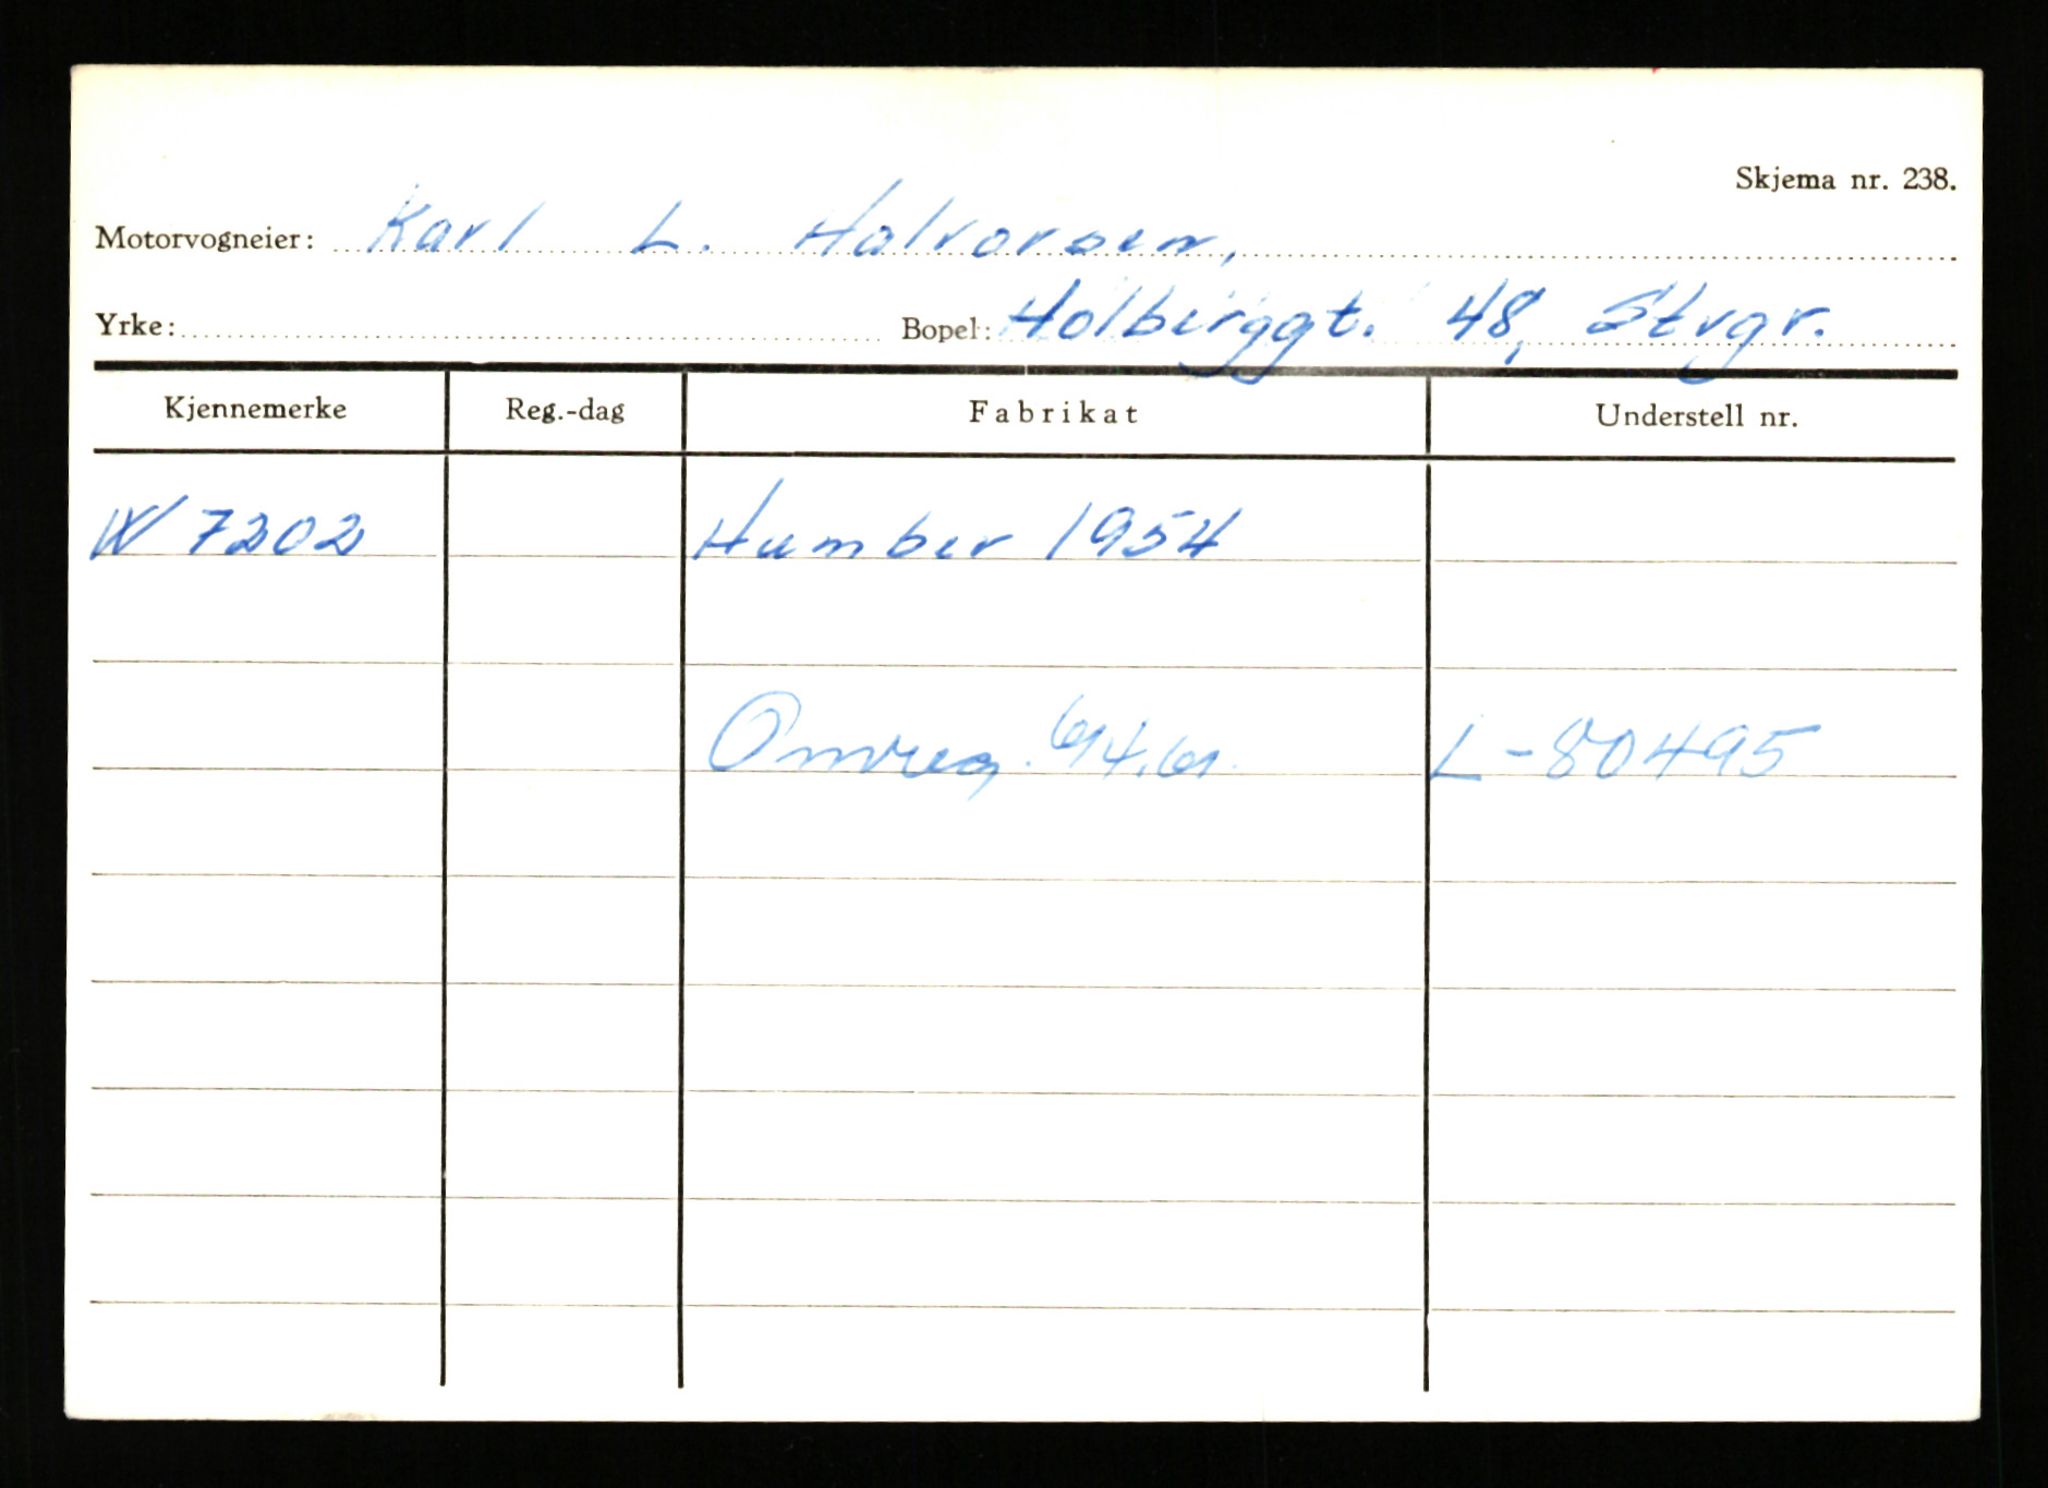 Skjema nr. 238.
Motorvogneier: Karl L. Halvorsen,
Yrke: Bopel: Holberggt. 48, Stvgr.
Kjennemerke Reg.-dag Fabrikat Understell nr.
W 7202 Humber 1954
Omreg. L-80495